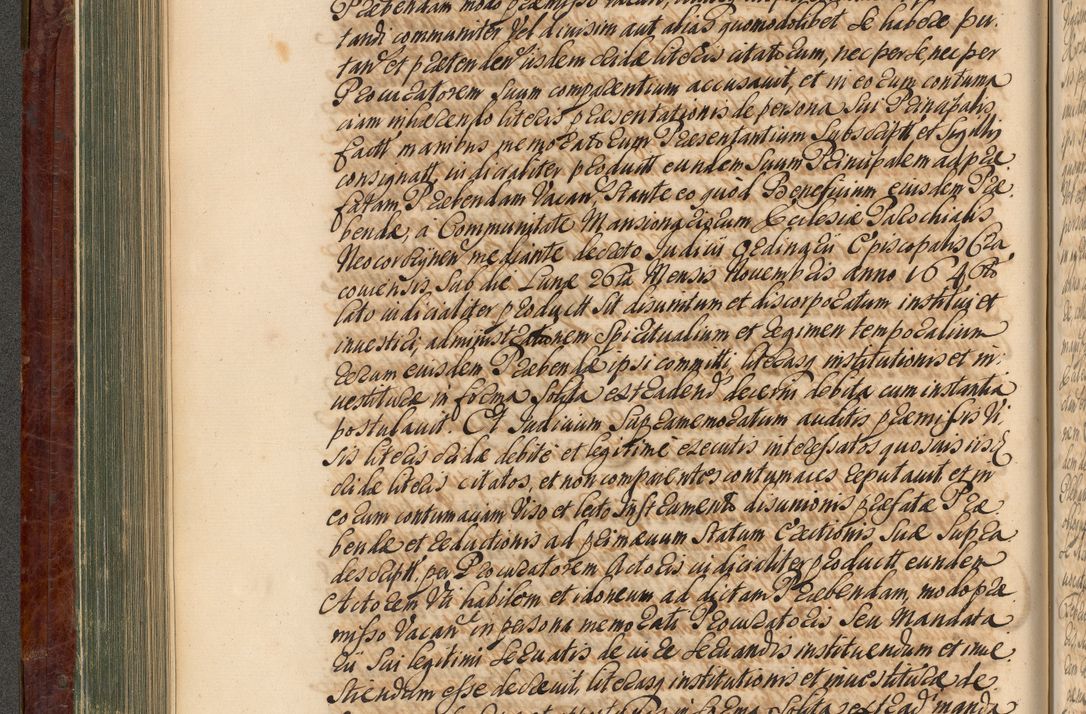 Præbendam modo præmisso vacan,
tandi communiter vel divisim aut alias quomodolibet se habere pu
tan et prætenden iisdem cridæ literis citatorum, nec per se, nec per
Procuratorem suum comparentium accusavit, et in eorum contuma
ciam inhærendo literis præsentationis de persona sui Principalis
factt manibus memoratorum Præsentantium subscriptt et sigillis
consignatt, iudicialiter productt eundem suum Principalem ad præ
fatam Præbendam vacan, stante eo quod Beneficium eiusdem Præ
bendæ, a Communitate Mansionariorum Ecclesiæ Parochialis
Neocorczynen mediante decreto Judicii Ordinarii Episcopalis Cra
coviensis, sub die Lunæ 26ta Mensis Novembris anno 1646to
lato iudicialiter productt sit disunitum et discorporatum institui et
investiri, administrationem spiritualium et regimen temporalium
eorum eiusdem Præbendæ ipsi committi, literasq institutionis et in
vestituræ in forma solita extraden decerni debita cum instantia
postulavit. Et Judicium supramemoratum auditis præmissis vi
sis literis cridæ debite et legitime executis interessatos quosvis iisd
cridæ literis citatos, et non comparentes contumaces reputavit et in
eorum contumaciam viso et lecto Instrumento disunionis præfatæ Præ
bendæ et reductionis ad primævum statum Erectionis suæ supra
descriptt, per Procuratorem Actoris iudicialiter productt eundem
Actorem uti habilem et idoneum ad dictam Præbendam, modo præ
misso vacan in persona memorati Procuratoris seu Mandata
rii sui legitimi servatis de iure servandis instituendum et inve
stiendum esse decrevit, literasq institutionis et investituræ de
forma solita extrad manda